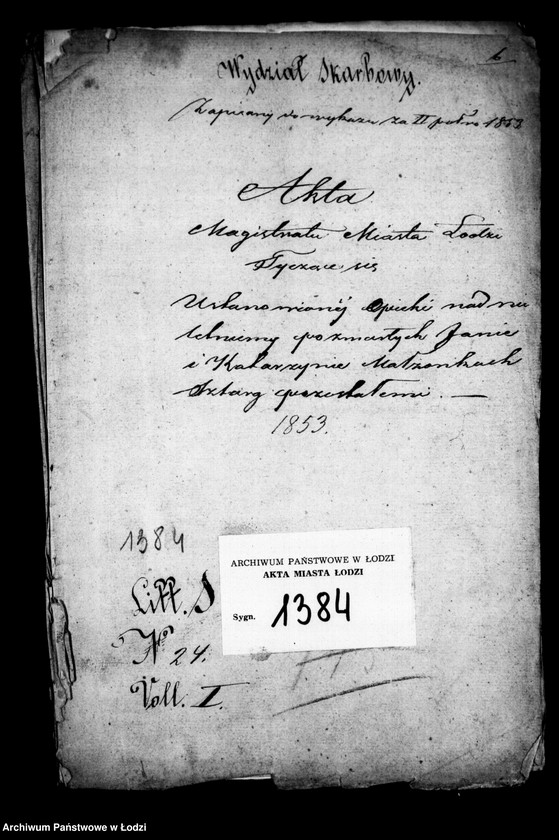 6
Wydział Skarbowy.
Zapisany do wykazu za II półro 1853
Akta
Magistratu Miasta Łodzi
Tyczące się
Ustanowionéj opieki nad nie
letniemi po zmarłych Janie
i Katarzynie Małżonkach
Sztarg pozostałemi. —
1853.
1384
ARCHIWUM PAŃSTWOWE W ŁODZI
AKTA MIASTA ŁODZI
Sygn. 1384
Litt. S
No 24.
Voll. I.
Archiwum Państwowe w Łodzi